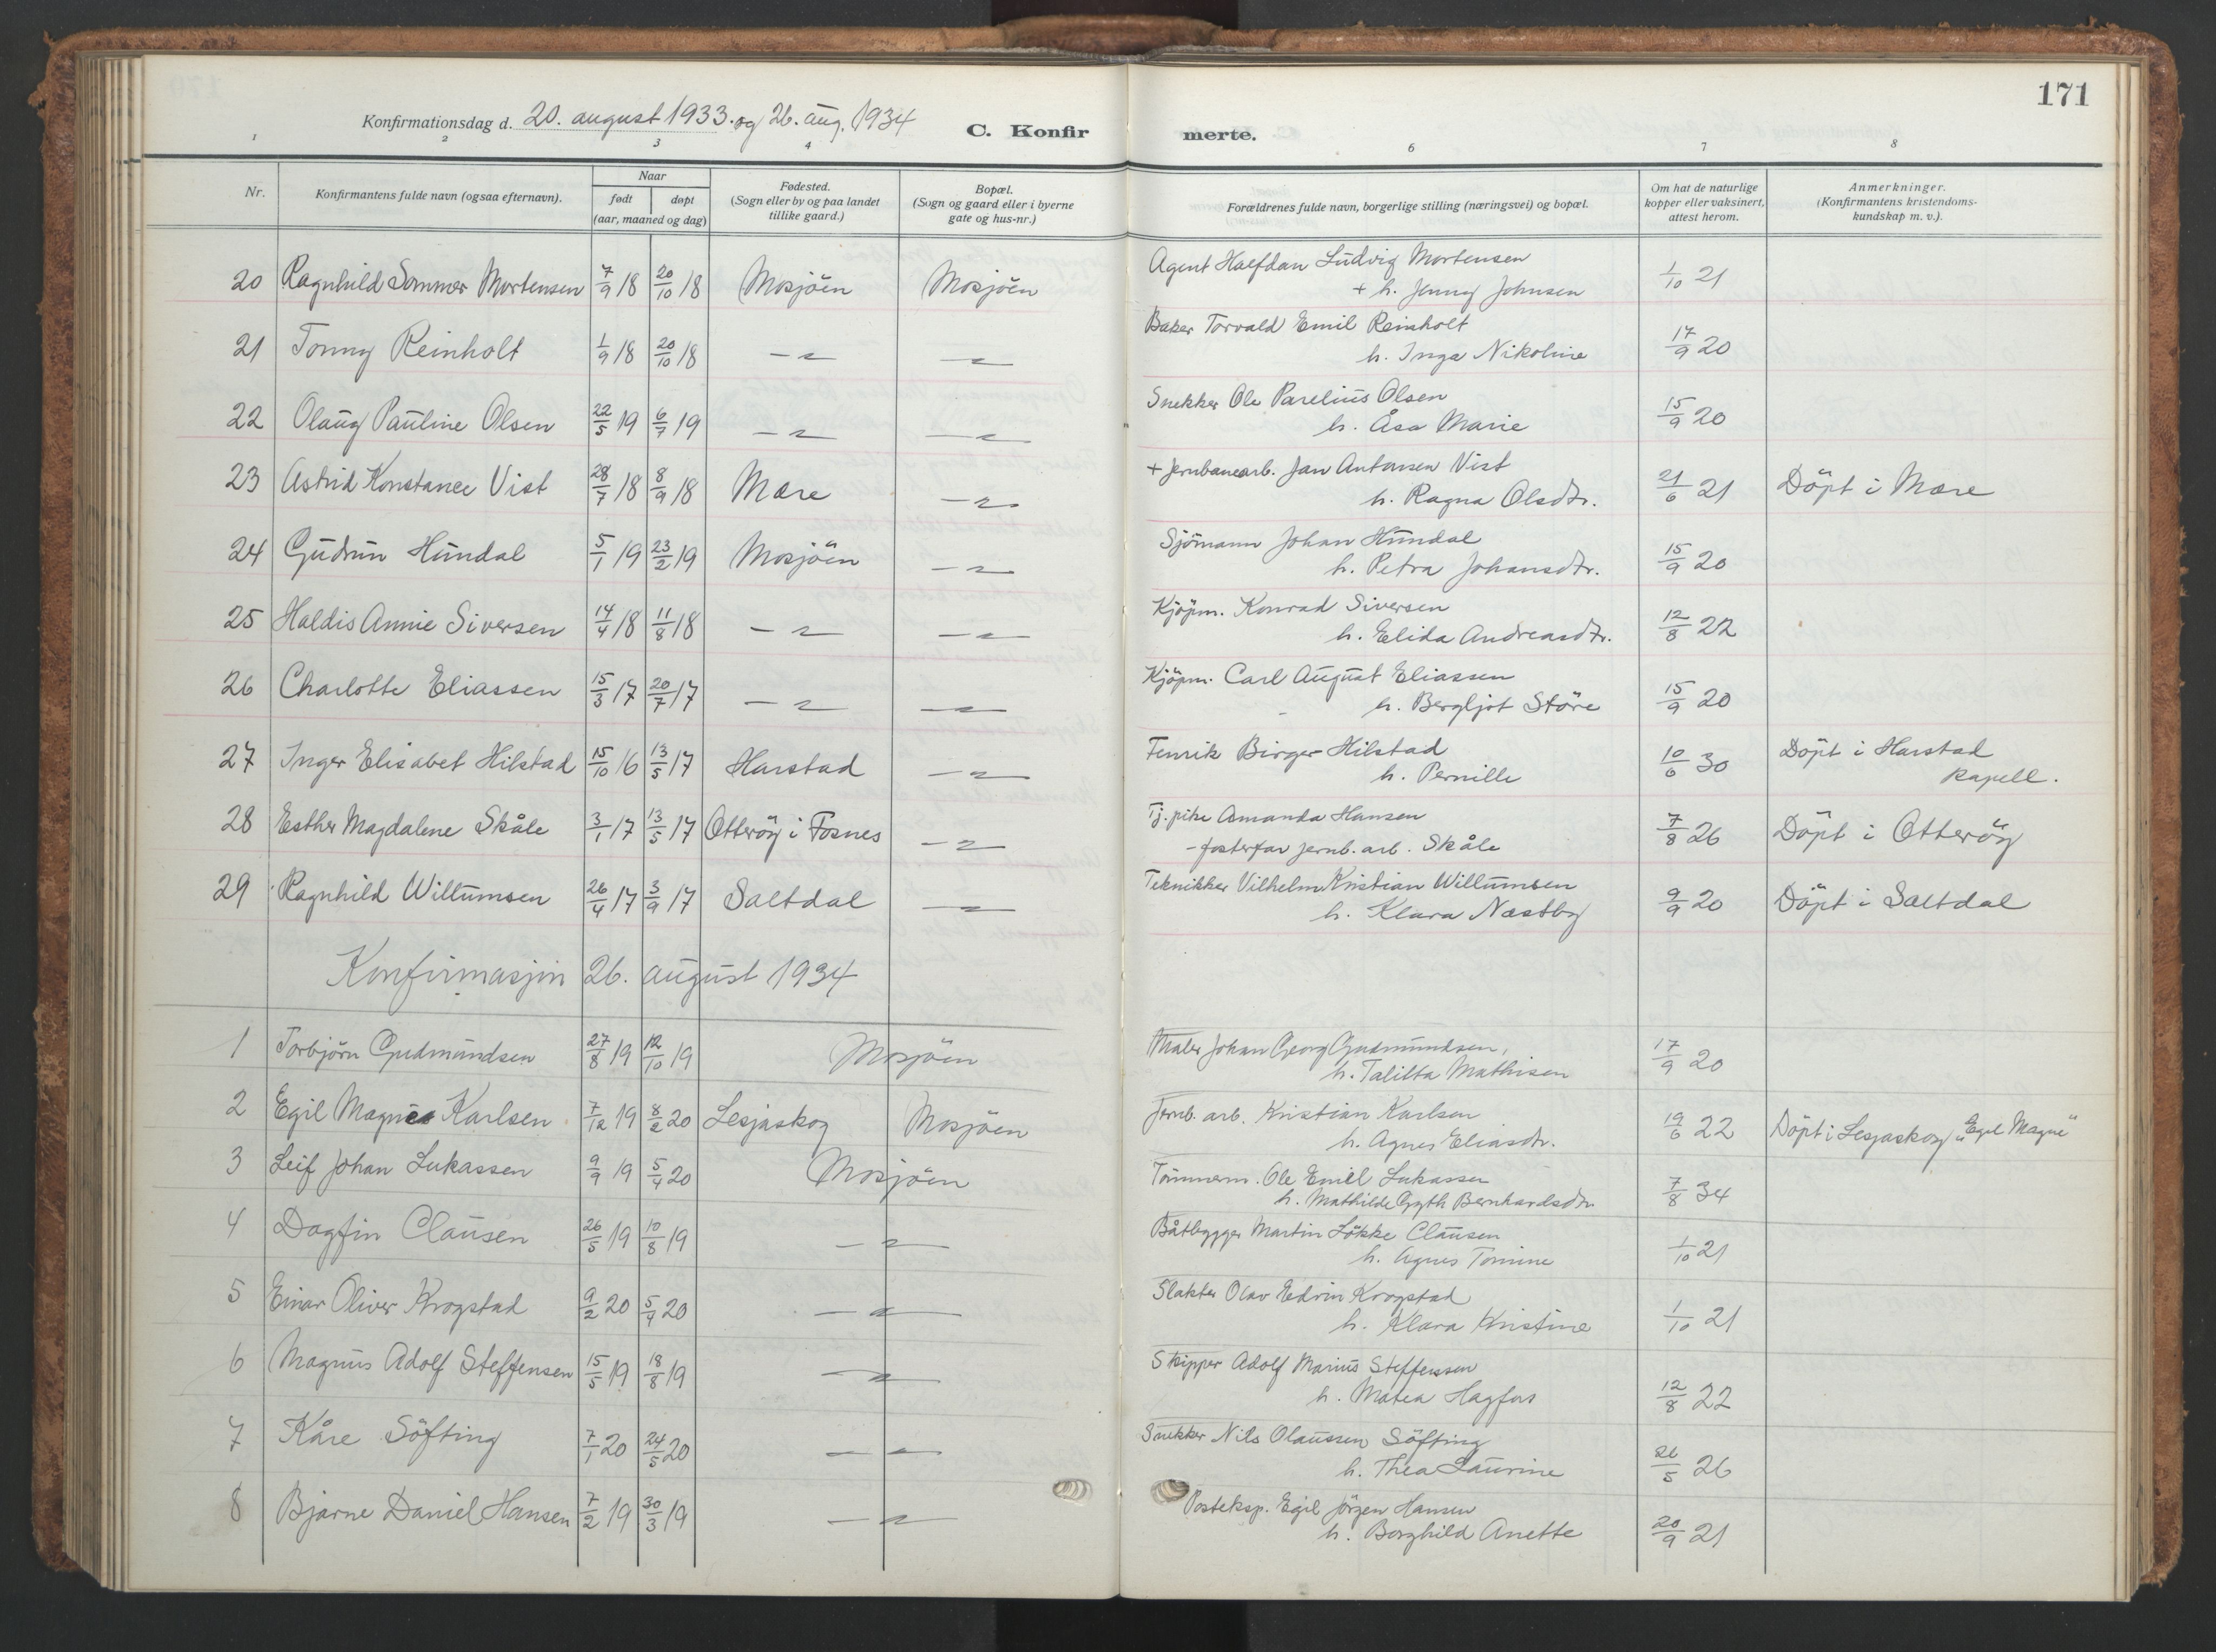 171
Konfirmationsdag d. 20. august 1933. og 26. aug. 1934
C. Konfirmerte.
1 2 3 4 6 7 8
Nr.
Konfirmantens fulde navn (ogsaa efternavn).
Naar
født døpt
(aar, maaned og dag)
Fødested.
(Sogn eller by og paa landet
tillike gaard.)
Bopæl.
(Sogn og gaard eller i byerne
gate og hus-nr.)
Forældrenes fulde navn, borgerlige stilling (næringsvei) og bopæl.
Om hat de naturlige
kopper eller vaksinert,
attest herom.
Anmerkninger.
(Konfirmantens kristendoms-
kundskap m. v.).
20 Ragnhild Sommer Mortensen 7/9 18 20/10 18 Mosjöen Mosjöen Agent Halfdan Ludvig Mortensen
+ h. Jenny Johnsen 1/10 21
21 Tonny Reinholt 1/9 18 20/10 18 — " — — " — Baker Torvald Emil Reinholt
h. Inga Nikoline 17/9 20
22 Olaug Pauline Olsen 22/5 19 6/7 19 — " — — " — Snekker Ole Parelius Olsen
h. Åsa Marie 15/9 20
23 Astrid Konstance Vist 28/7 18 8/9 18 Mære — " — + Jernbanearb. Jan Antonsen Vist
h. Ragna Olsdtr. 21/6 21 Döpt i Mære
24 Gudrun Hundal 5/1 19 23/2 19 Mosjöen — " — Sjömann Johan Hundal
h. Petra Johansdtr. 15/9 20
25 Haldis Annie Siversen 14/4 18 11/8 18 — " — — " — Kjöpm. Konrad Siversen
h. Elida Andreasdtr. 12/8 22
26 Charlotte Eliassen 15/3 17 20/7 17 — " — — " — Kjöpm. Carl August Eliassen
h. Bergljot Störe 15/9 20
27 Inger Elisabet Hilstad 15/10 16 13/5 17 Harstad — " — Fenrik Birger Hilstad
h. Pernille 10/6 30 Döpt i Harstad
kapell.
28 Esther Magdalene Skåle 3/1 17 13/5 17 Otteröy i Fosnes — " — Tj. pike Amanda Hansen
- fosterfar jernb. arb. Skåle 7/8 26 Döpt i Otteröy
29 Ragnhild Willumsen 26/4 17 3/9 17 Saltdal — " — Teknikker Vilhelm Kristian Willumsen
h. Klara Næstby 9/9 20 Döpt i Saltdal
Konfirmasjon 26. august 1934
1 Torbjörn Gudmundsen 27/8 19 12/10 19 Mosjöen Maler Johan Georg Gudmundsen,
h. Talitta Mathisen 17/9 20
2 Egil Magnes Karlsen 7/12 19 8/2 20 Lesjaskog Mosjöen Jernb. arb. Kristian Karlsen
h. Agnes Eliasdtr. 19/6 22 Döpt i Lesjaskog "Egil Magne"
3 Leif Johan Lukassen 9/9 19 5/4 20 Mosjöen Tömmerm. Ole Emil Lukassen
h. Mathilde Gyth Bernhardsdtr 7/8 34
4 Dagfin Clausen 26/5 19 10/8 19 — " — Båtbygger Martin Lökke Clausen
h. Agnes Tomine 1/10 21
5 Einar Oliver Krogstad 9/2 20 5/4 20 — " — Slakter Olav Edvin Krogstad
h. Klara Kristine 1/10 21
6 Magnus Adolf Steffensen 15/5 19 18/8 19 — " — Skipper Adolf Marius Steffensen
h. Matea Hagfors 12/8 22
7 Kåre Söfting 7/1 20 24/5 20 — " — Snekker Nils Olaussen Söfting
h. Thea Laurine 26/5 26
8 Bjarne Daniel Hansen 7/2 19 30/3 19 — " — Posteksp. Egil Jörgen Hansen
h. Borghild Anette 20/9 21